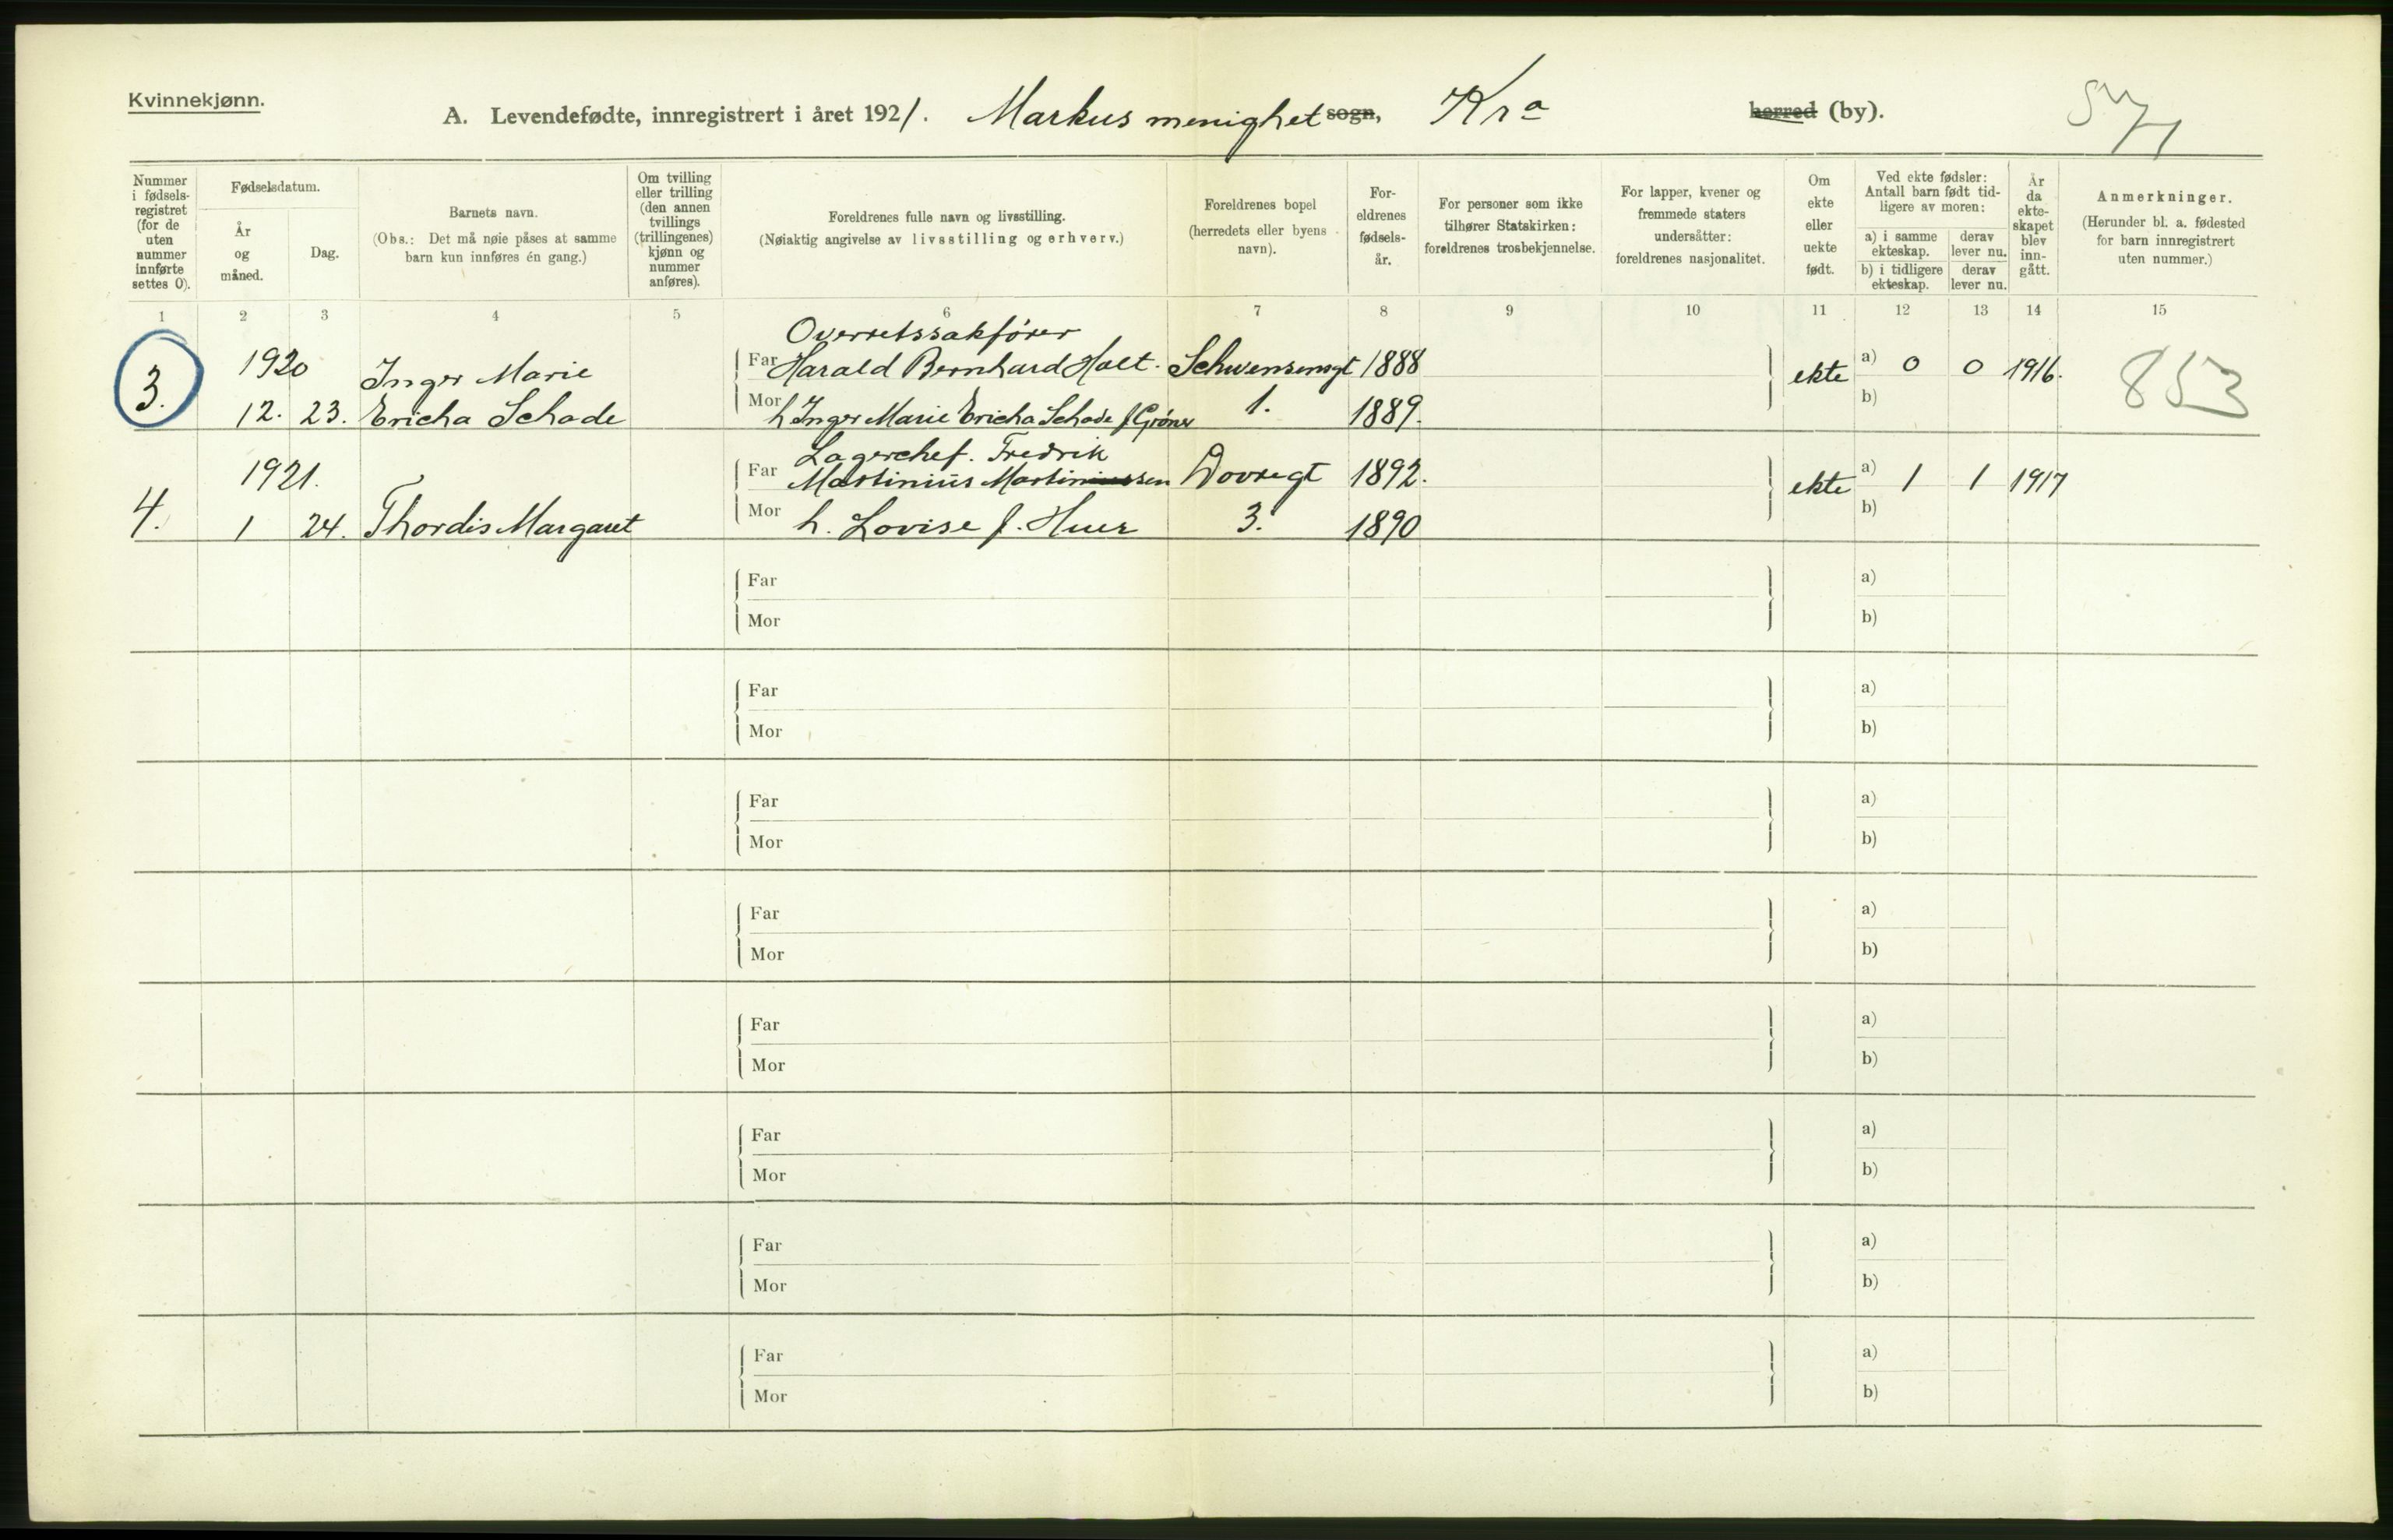 Kvinnekjønn.
A. Levendefødte, innregistrert i året 1921. Markus menighet sogn, Kra herred (by).
Nummer i fødsels-registret (for de uten nummer innførte settes 0).
Fødselsdatum.
År og måned.
Dag.
Barnets navn.
(Obs.: Det må nøie påses at samme barn kun innføres én gang.)
Om tvilling eller trilling (den annen tvillings (trillingenes) kjønn og nummer anføres).
Foreldrenes fulle navn og livsstilling.
(Nøiaktig angivelse av livsstilling og erhverv.)
Foreldrenes bopel (herredets eller byens navn).
For-eldrenes fødsels-år.
For personer som ikke tilhører Statskirken: foreldrenes trosbekjennelse.
For lapper, kvener og fremmede staters undersåtter: foreldrenes nasjonalitet.
Om ekte eller uekte født.
Ved ekte fødsler: Antall barn født tid-ligere av moren:
a) i samme ekteskap. derav lever nu.
b) i tidligere ekteskap. derav lever nu.
År da ekte-skapet blev inn-gått.
Anmerkninger.
(Herunder bl. a. fødested for barn innregistrert uten nummer.)
1 2 3 4 5 6 7 8 9 10 11 12 13 14 15
Overretssakfører
3. 1920 Inger Marie Far Harald Bernhard Holt. Schwensensgt 1888 ekte a) 0 0 1916. 853
12. 23. Ericha Schade Mor h Inger Marie Ericha Schade f. Grøner 1. 1889. b)
Lagerchef. Fredrik
4. 1921. Far Martinius Martinussen Dovregt 1892. ekte a) 1 1 1917
1 24. Thordis Margaret Mor h. Lovise f. Huer 3. 1890 b)
Far a)
Mor b)
Far a)
Mor b)
Far a)
Mor b)
Far a)
Mor b)
Far a)
Mor b)
Far a)
Mor b)
Far a)
Mor b)
Far a)
Mor b)